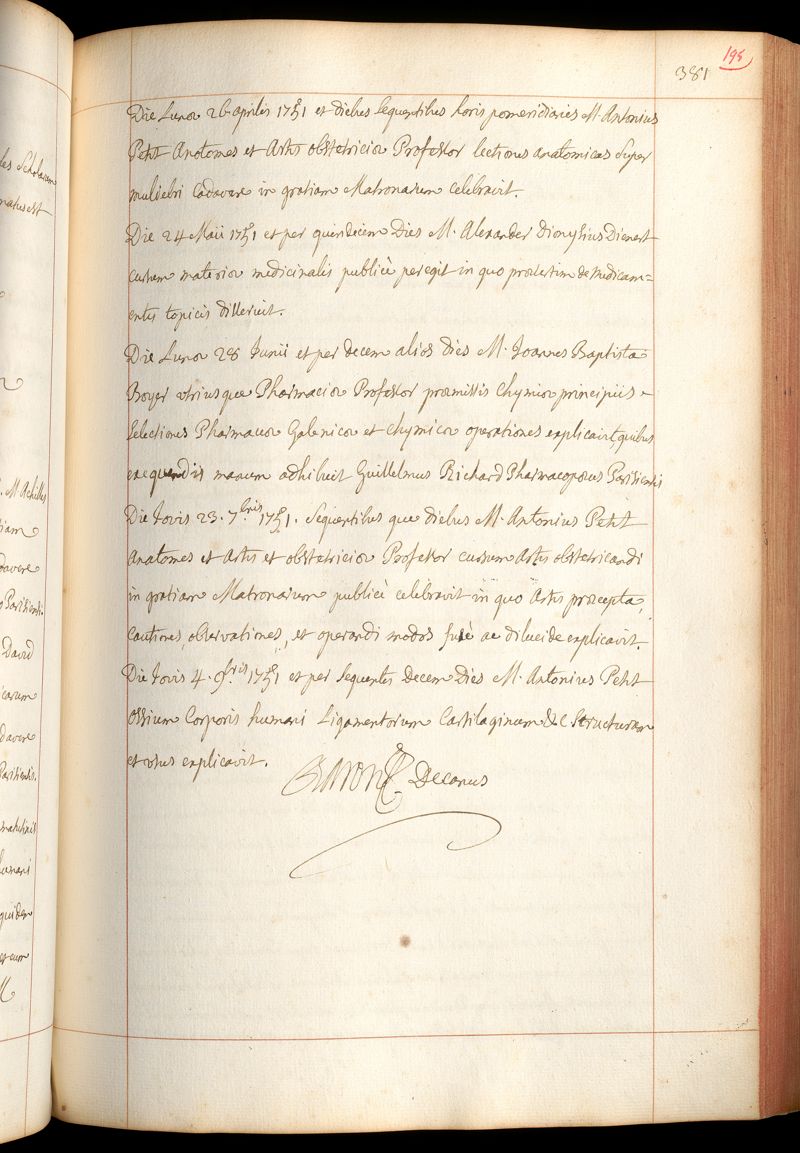 198
381
Die Lunæ 26 aprilis 1751 et diebus sequentibus horis pomeridianis M. Antonius
Petit Anatomes et Artis obstetriciæ Professor lectiones anatomicas super
muliebri cadavere in gratiam Matronarum celebravit.
Die 24 Maii 1751 et per quindecim Dies M. Alexander Dionysius Dienert
cursum materiæ medicinalis publicè peregit in quo præsertim de Medicam=
entis topicis disseruit.
Die Lunæ 28 Junii et per decem alios dies M. Joannes Baptista
Boyer utriusque Pharmaciæ Professor præmissis Chymiæ principiis
selectiones Pharmaciæ Galenicæ et chymicæ operationes explicavit, quibus
exequendis manum adhibuit Guillelmus Richard Pharmacopœus Parisiensis
Die Jovis 23. 7bris 1751. sequentibus que diebus M. Antonius Petit
Anatomes et Artis et obstetriciæ Professor cursum Artis obstetricandi
in gratiam Matronarum publicè celebravit in quo Artis præcepta,
Cautiones, observationes, et operandi modos fusè ac dilucide explicavit.
Die Jovis 4. 9bris 1751 et per sequentes decem Dies M. Antonius Petit
ossium Corporis humani Ligamentorum Cartilaginum &c Structuram
et usus explicavit.
Baron Decanus
les Scholarum
natus est
M. Achilles
davere
Parisiensi.
David
davere
Parisiensis.
matutinis
humani
quidem
et cum
M